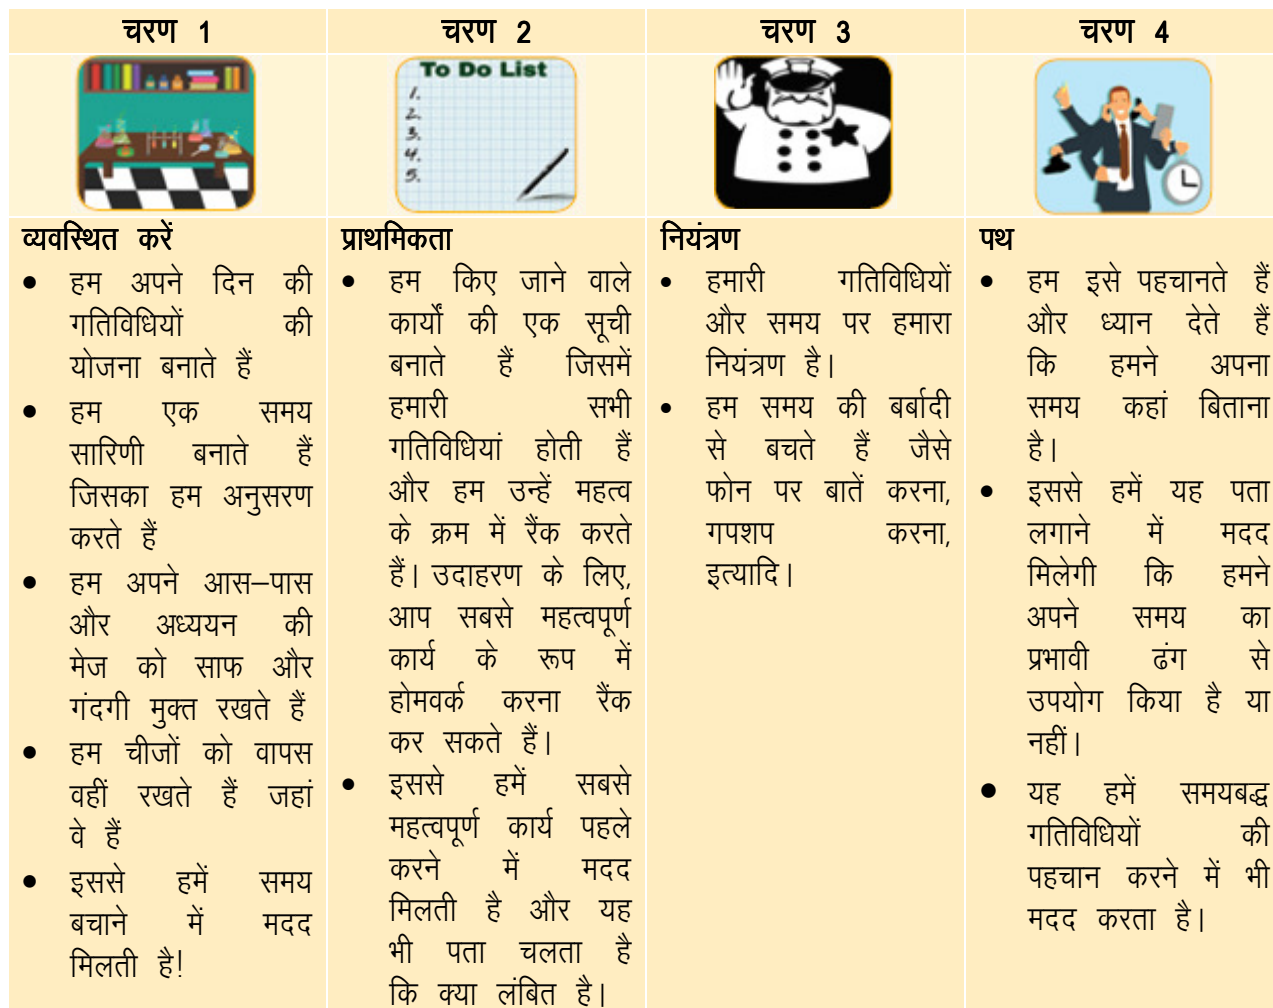 चरण 1
चरण 2
चरण 3
चरण 4
To Do List
1.
2.
3.
4.
5.
व्यवस्थित करें
• हम अपने दिन की
गतिविधियों की
योजना बनाते हैं
• हम एक समय
सारिणी बनाते हैं
जिसका हम अनुसरण
करते हैं
• हम अपने आस–पास
और अध्ययन की
मेज को साफ और
गंदगी मुक्त रखते हैं
• हम चीजों को वापस
वहीं रखते हैं जहां
वे हैं
• इससे हमें समय
बचाने में मदद
मिलती है!
प्राथमिकता
• हम किए जाने वाले
कार्यों की एक सूची
बनाते हैं जिसमें
हमारी सभी
गतिविधियां होती हैं
और हम उन्हें महत्व
के क्रम में रैंक करते
हैं। उदाहरण के लिए,
आप सबसे महत्वपूर्ण
कार्य के रूप में
होमवर्क करना रैंक
कर सकते हैं।
• इससे हमें सबसे
महत्वपूर्ण कार्य पहले
करने में मदद
मिलती है और यह
भी पता चलता है
कि क्या लंबित है।
नियंत्रण
• हमारी गतिविधियों
और समय पर हमारा
नियंत्रण है।
• हम समय की बर्बादी
से बचते हैं जैसे
फोन पर बातें करना,
गपशप करना,
इत्यादि।
पथ
• हम इसे पहचानते हैं
और ध्यान देते हैं
कि हमने अपना
समय कहां बिताना
है।
• इससे हमें यह पता
लगाने में मदद
मिलेगी कि हमने
अपने समय का
प्रभावी ढंग से
उपयोग किया है या
नहीं।
• यह हमें समयबद्ध
गतिविधियों की
पहचान करने में भी
मदद करता है।